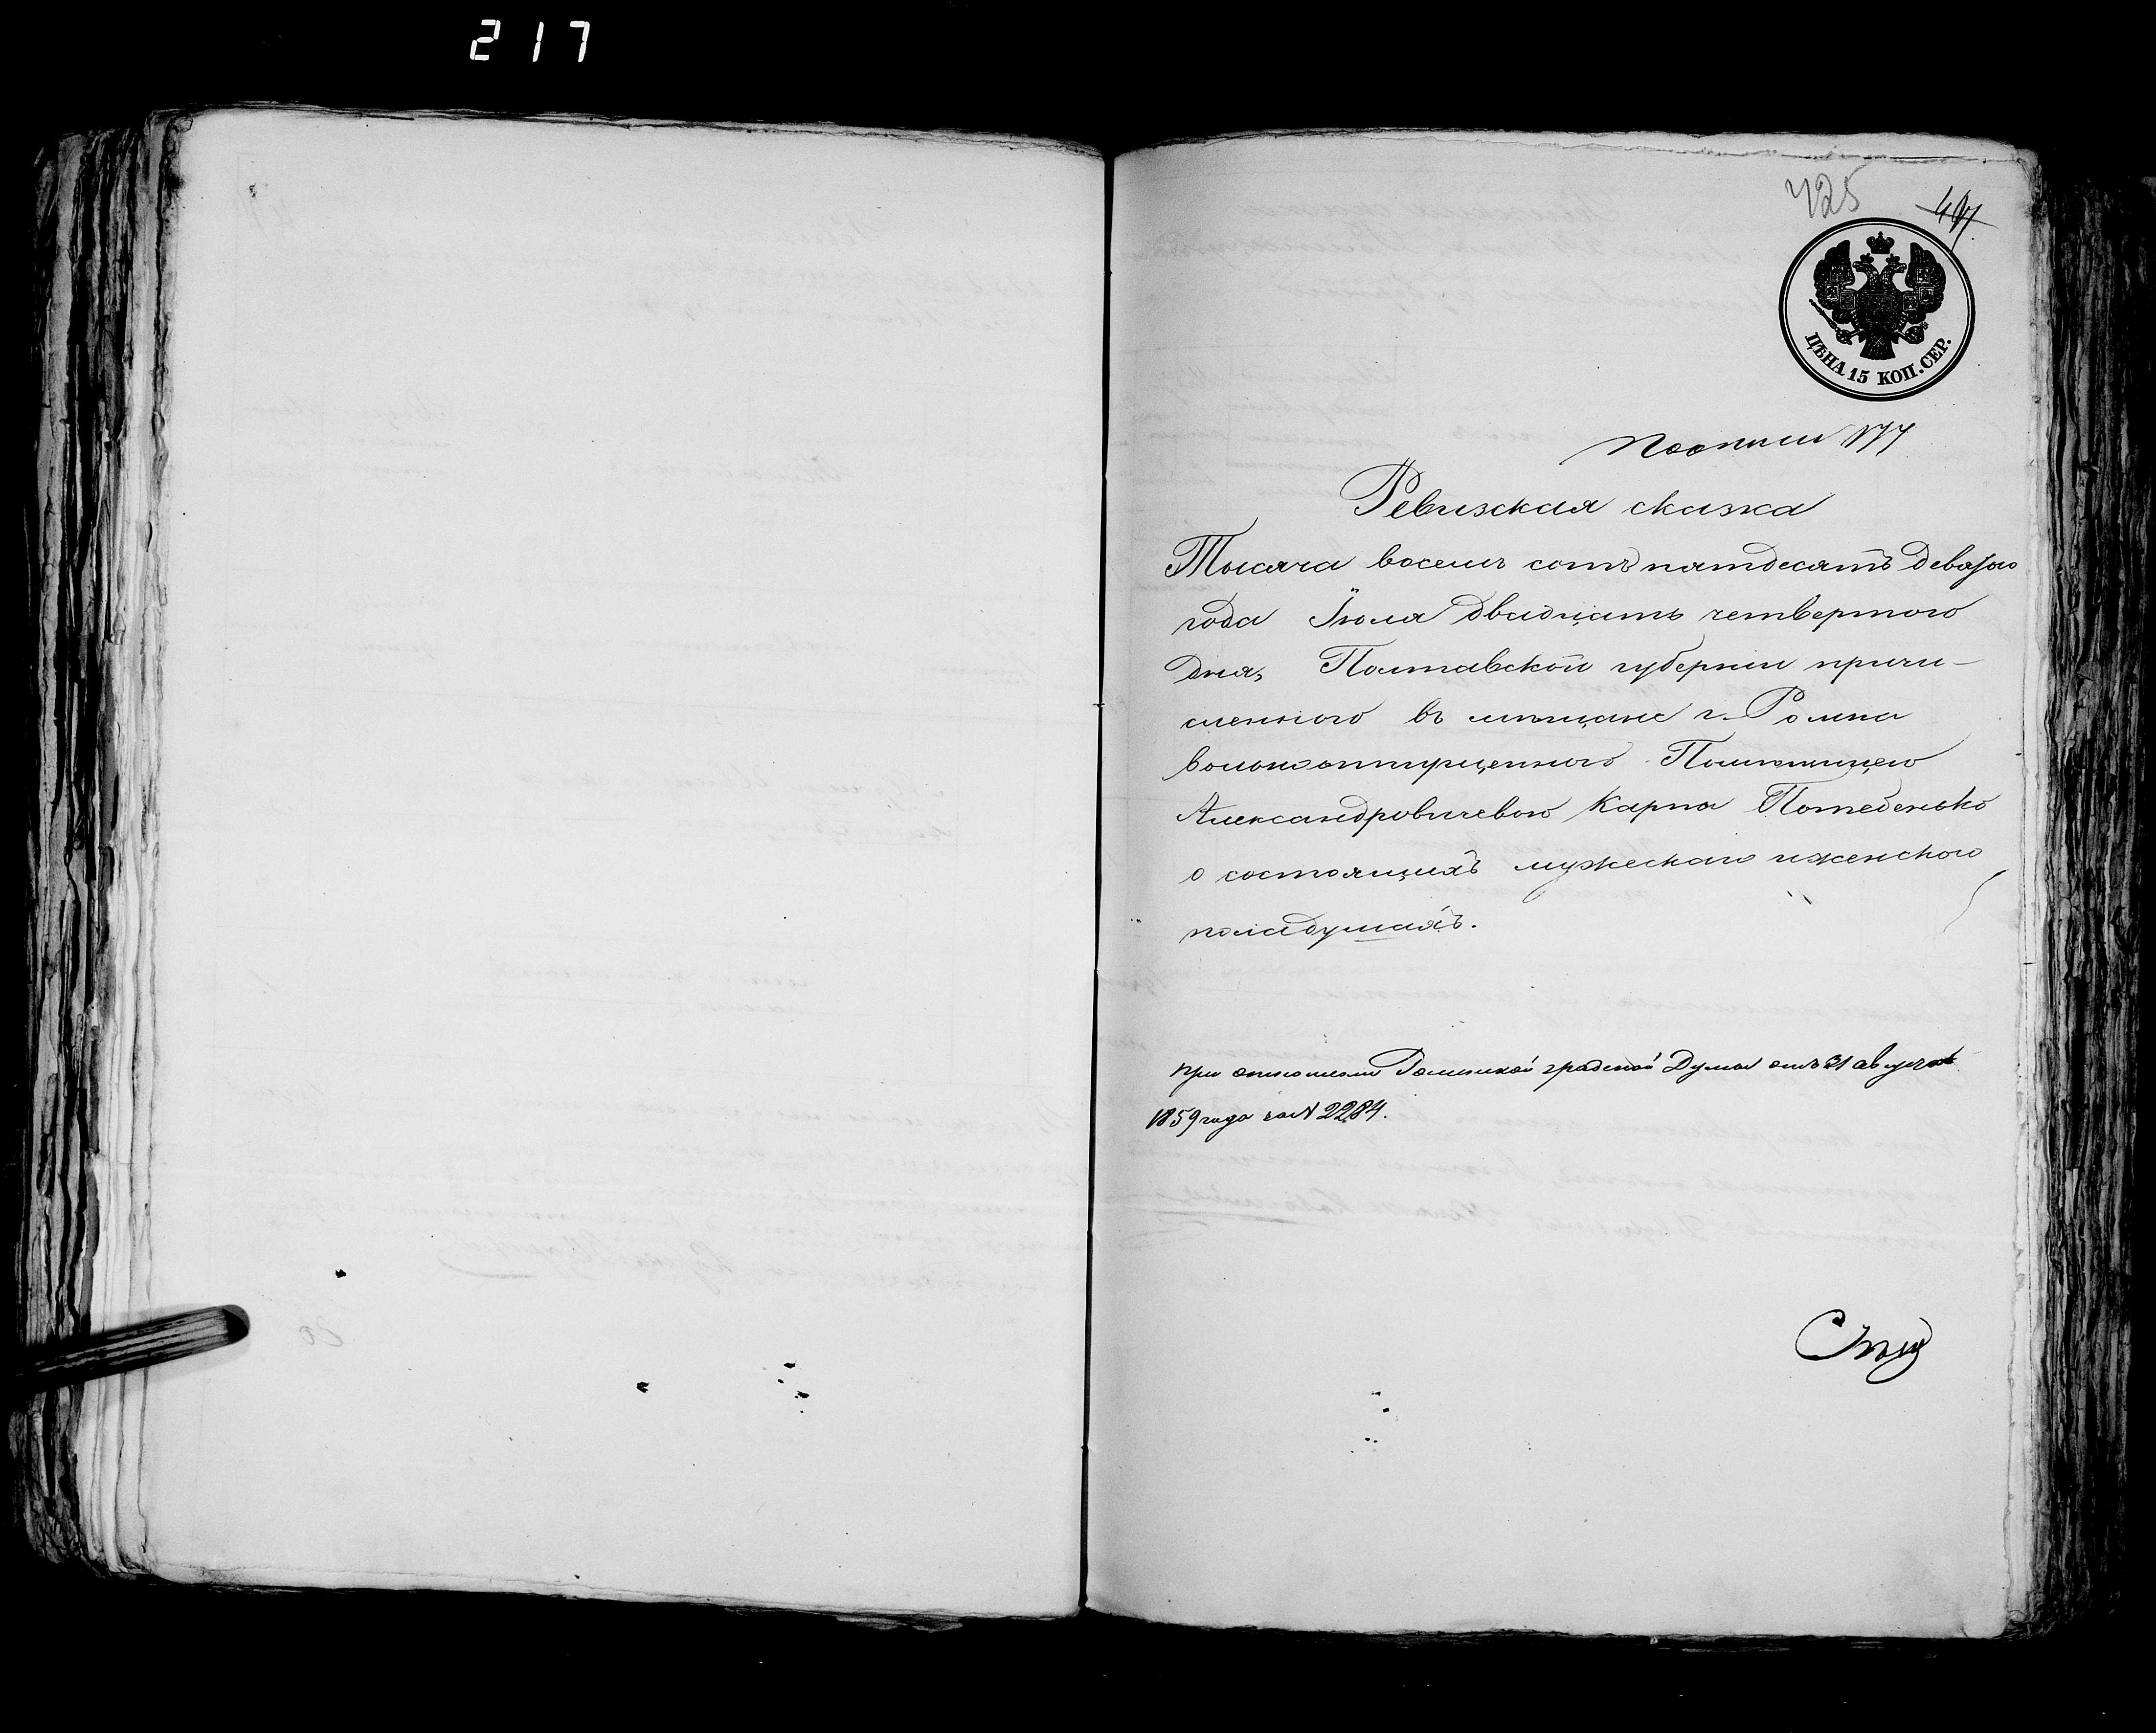 217
425
497
ЦѢНА 15 КОП. СЕР.
по описи №77
Ревизская сказка
Тысяча восемь сотъ пятдесятъ девятого
года Іюля двадцать четвертого
дня, Полтавской губерніи причи-
сленного въ мѣщане г. Ромна
вольноотпущенного Помѣщицею
Александровичевою Карпа Потебенько
о состоящихъ мужескаго и женского
пола душахъ.
при отношеніи Роменской градской Думы отъ 31 августа
1859 года за № 2284.